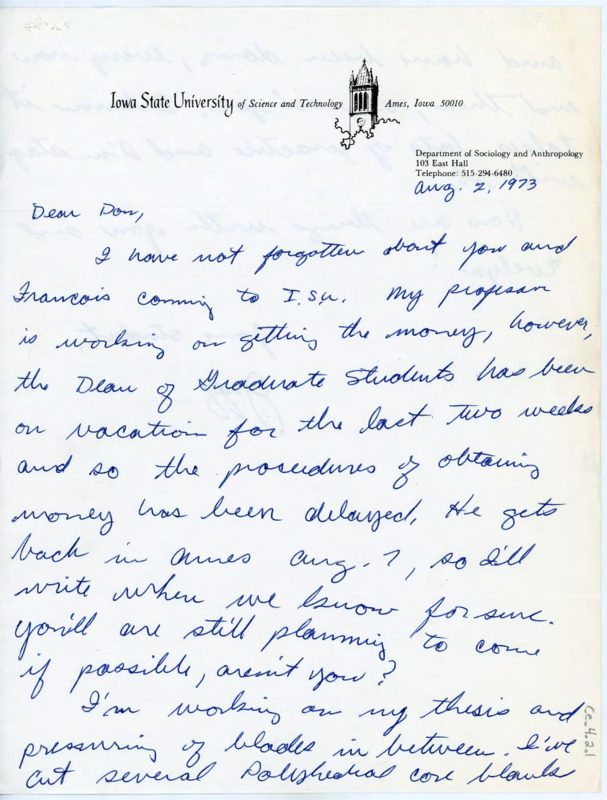 Iowa State University of Science and Technology Ames, Iowa 50010
Department of Sociology and Anthropology
103 East Hall
Telephone: 515-294-6480
Aug. 2, 1973
Dear Don,
I have not forgotten about you and
Francois coming to I.S.U. My professor
is working on getting the money, however,
the Dean of Graduate Students has been
on vacation for the last two weeks
and so the procedures of obtaining
money has been delayed. He gets
back in Ames Aug. 7, so I'll
write when we know for sure.
You'll are still planning to come
if possible, aren't you?
I'm working on my thesis and
pressuring of blades in between. I've
cut several Polyhedral core blanks
Cc.4.2.1